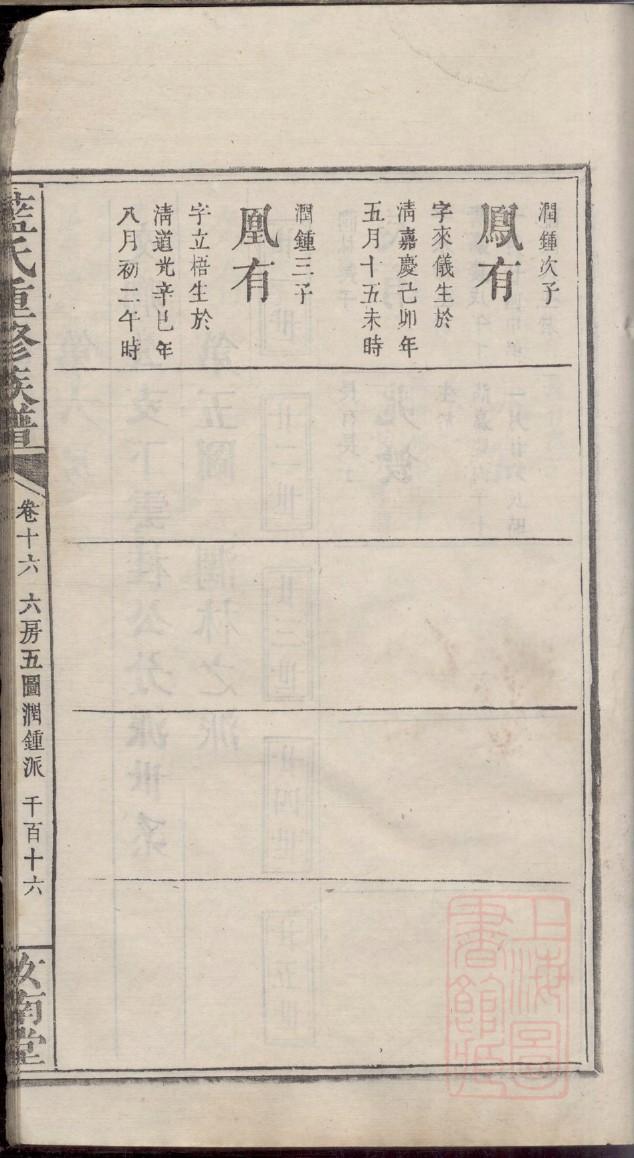 潤鍾次子
鳳有
字來儀生於
淸嘉慶己卯年
五月十五未時
潤鍾三子
凰有
字立梧生於
淸道光辛巳年
八月初二午時
藍氏重修族譜
卷十六 六房五圖潤鍾派 千百十六
汝南堂
上海圖書館藏